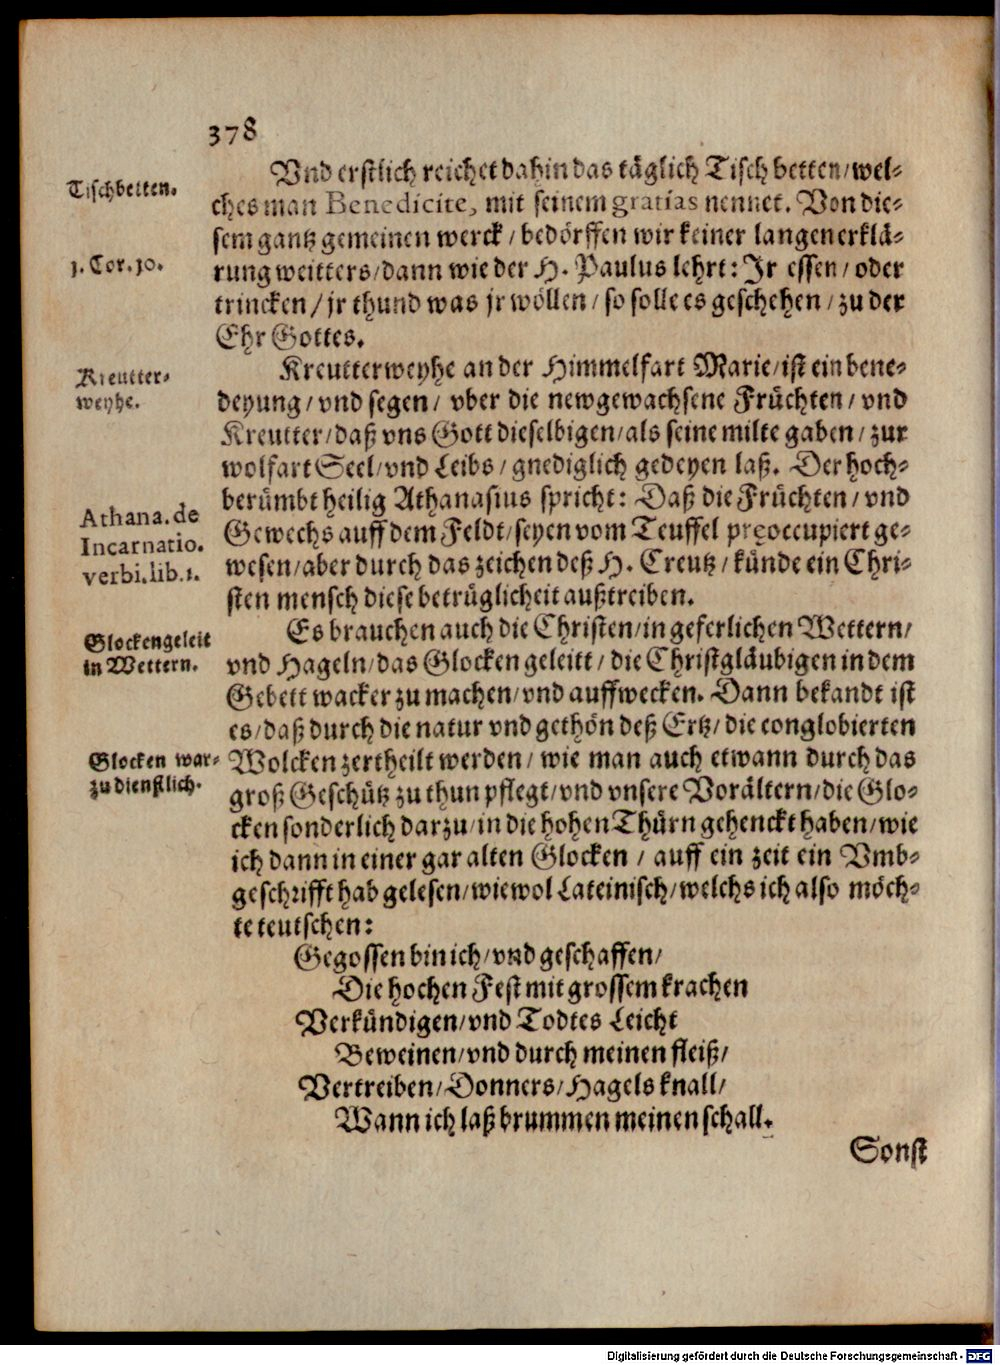 378
Vnd erstlich reichet dahin das täglich Tisch betten/wel-
Tischbetten.
ches man Benedicite, mit seinem gratias nennet. Von die-
sem gantz gemeinen werck / bedörffen wir keiner langen erklä-
1. Cor. 10.
rung weitters/dann wie der H. Paulus lehrt: Ir essen / oder
trincken / jr thund was jr wöllen / so solle es geschehen / zu der
Ehr Gottes.
Kreutterweyhe an der Himmelfart Marie/ist ein bene-
Kreutter-
weyhe.
deyung / vnd segen / vber die newgewachsene Früchten / vnd
Kreutter/daß vns Gott dieselbigen/als seine milte gaben / zur
wolfart Seel/vnd Leibs / gnediglich gedeyen laß. Der hoch-
berümbt heilig Athanasius spricht: Daß die Früchten / vnd
Athana. de
Incarnatio.
verbi. lib. 1.
Gewechs auff dem Feldt/seyen vom Teuffel pręoccupiert ge-
wesen/aber durch das zeichen deß H. Creutz / künde ein Chri-
sten mensch diese betrüglicheit außtreiben.
Es brauchen auch die Christen/in geferlichen Wettern/
Glockengeleit
in Wettern.
vnd Hageln/das Glocken geleitt / die Christgläubigen in dem
Gebett wacker zu machen/vnd auffwecken. Dann bekandt ist
es/daß durch die natur vnd gethön deß Ertz/die conglobierten
Glocken war-
zu dienstlich.
Wolcken zertheilt werden / wie man auch etwann durch das
groß Geschütz zu thun pflegt/vnd vnsere Vorältern/die Glo-
cken sonderlich darzu/in die hohen Thürn gehenckt haben/wie
ich dann in einer gar alten Glocken / auff ein zeit ein Vmb-
geschrifft hab gelesen/wiewol Lateinisch/welchs ich also möch-
te teutschen:
Gegossen bin ich/vnd geschaffen/
Die hochen Fest mit grossem krachen
Verkündigen/vnd Todtes Leicht
Beweinen/vnd durch meinen fleiß/
Vertreiben/Donners/Hagels knall/
Wann ich laß brummen meinen schall.
Sonst
Digitalisierung gefördert durch die Deutsche Forschungsgemeinschaft - DFG